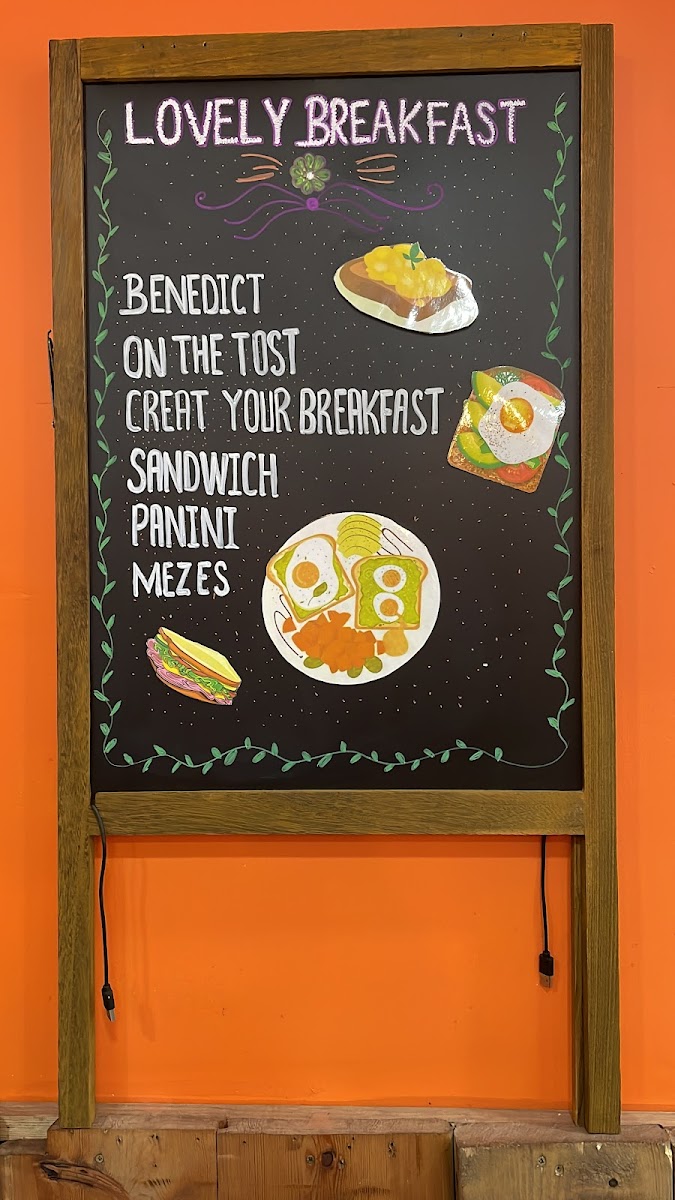 LOVELY BREAKFAST
BENEDICT
ON THE TOST
CREAT YOUR BREAKFAST
SANDWICH
PANINI
MEZES